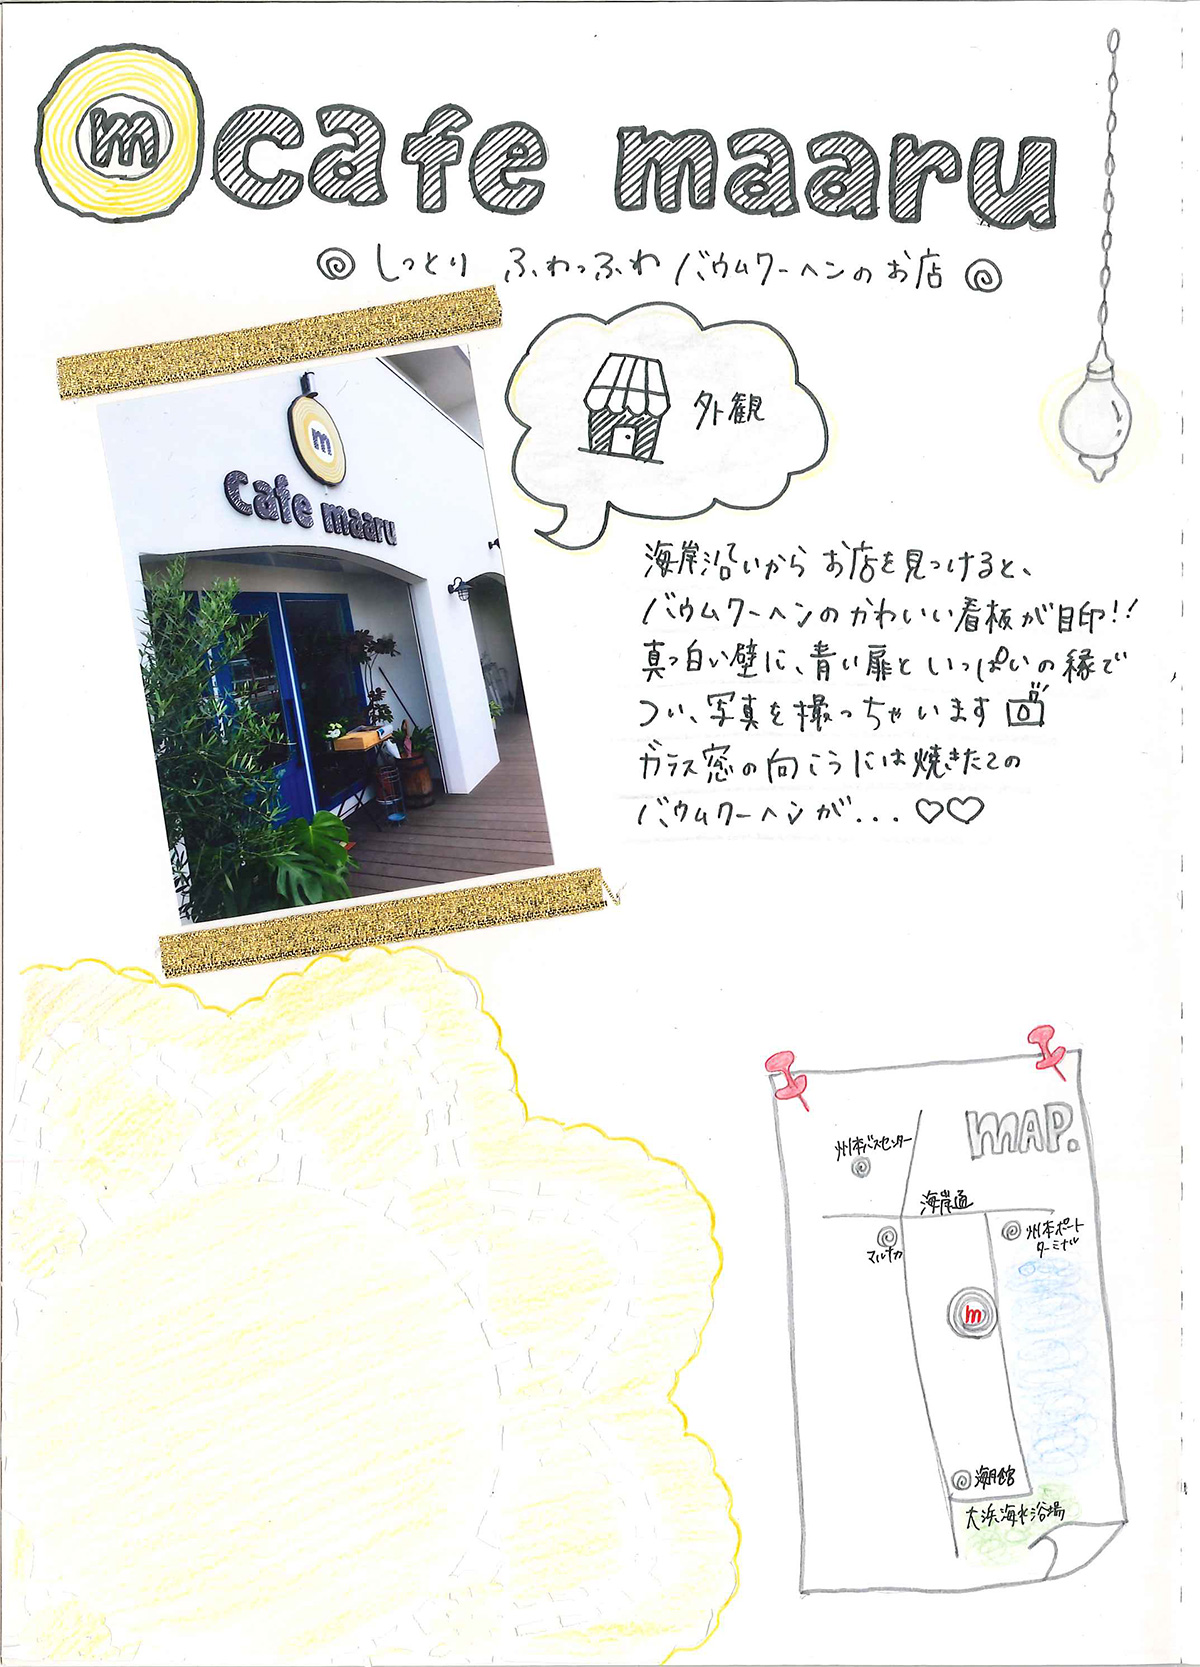 m cafe maaru
しっとり ふわっふわ バウムクーヘンのお店
m
Cafe maaru
外観
海岸沿いから お店を見つけると、
バウムクーヘンのかわいい看板が目印!!
真っ白い壁に、青い扉といっぱいの緑で
つい、写真を撮っちゃいます
ガラス窓の向こうには焼きたての
バウムクーヘンが...♡♡
MAP.
州本バスセンター
海岸通
マルナカ
州本ポート
ターミナル
m
海月館
大浜海水浴場